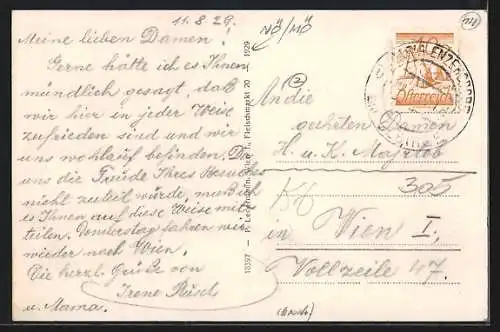 11.8.29.
Meine lieben Damen!
Gerne hätte ich es Ihnen
mündlich gesagt, daß
wir hier in jeder Weise
zufrieden sind und wir
uns wohlauf befinden. Da
uns die Freude Ihres Besuches
nicht zuteil wurde, muß ich
es Ihnen auf diese Weise mit-
teilen. Donnerstag fahren wir
wieder nach Wien.
Die herzl. Grüße von
Irene
u. Mama.
NÖ/NÖ
18397 - P. Ledermann, Wien I., Fleischmarkt 20 - 1929
10
Österreich
2
An die
geehrten Damen
H. u. K.
305
in Wien I.,
Vollzeile 47.